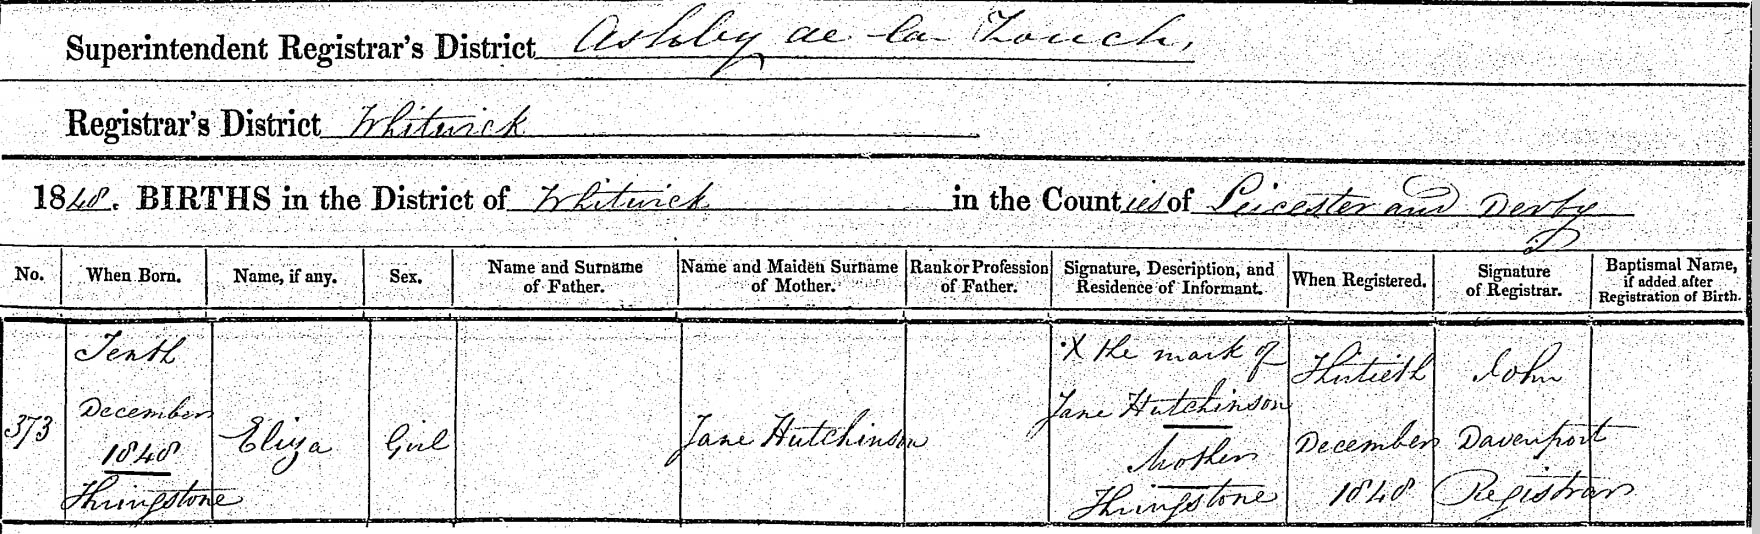 Superintendent Registrar's District Ashby de la Zouch,
Registrar's District Whitwick
1848. BIRTHS in the District of Whitwick in the Counties of Leicester and Derby
No. When Born. Name, if any. Sex. Name and Surname of Father. Name and Maiden Surname of Mother. Rank or Profession of Father. Signature, Description, and Residence of Informant. When Registered. Signature of Registrar. Baptismal Name, if added after Registration of Birth.
373
Tenth
December
1848
Thringstone
Eliza
Girl
Jane Hutchinson
X the mark of
Jane Hutchinson
Mother
Thringstone
Thirtieth
December
1848
John
Davenport
Registrar